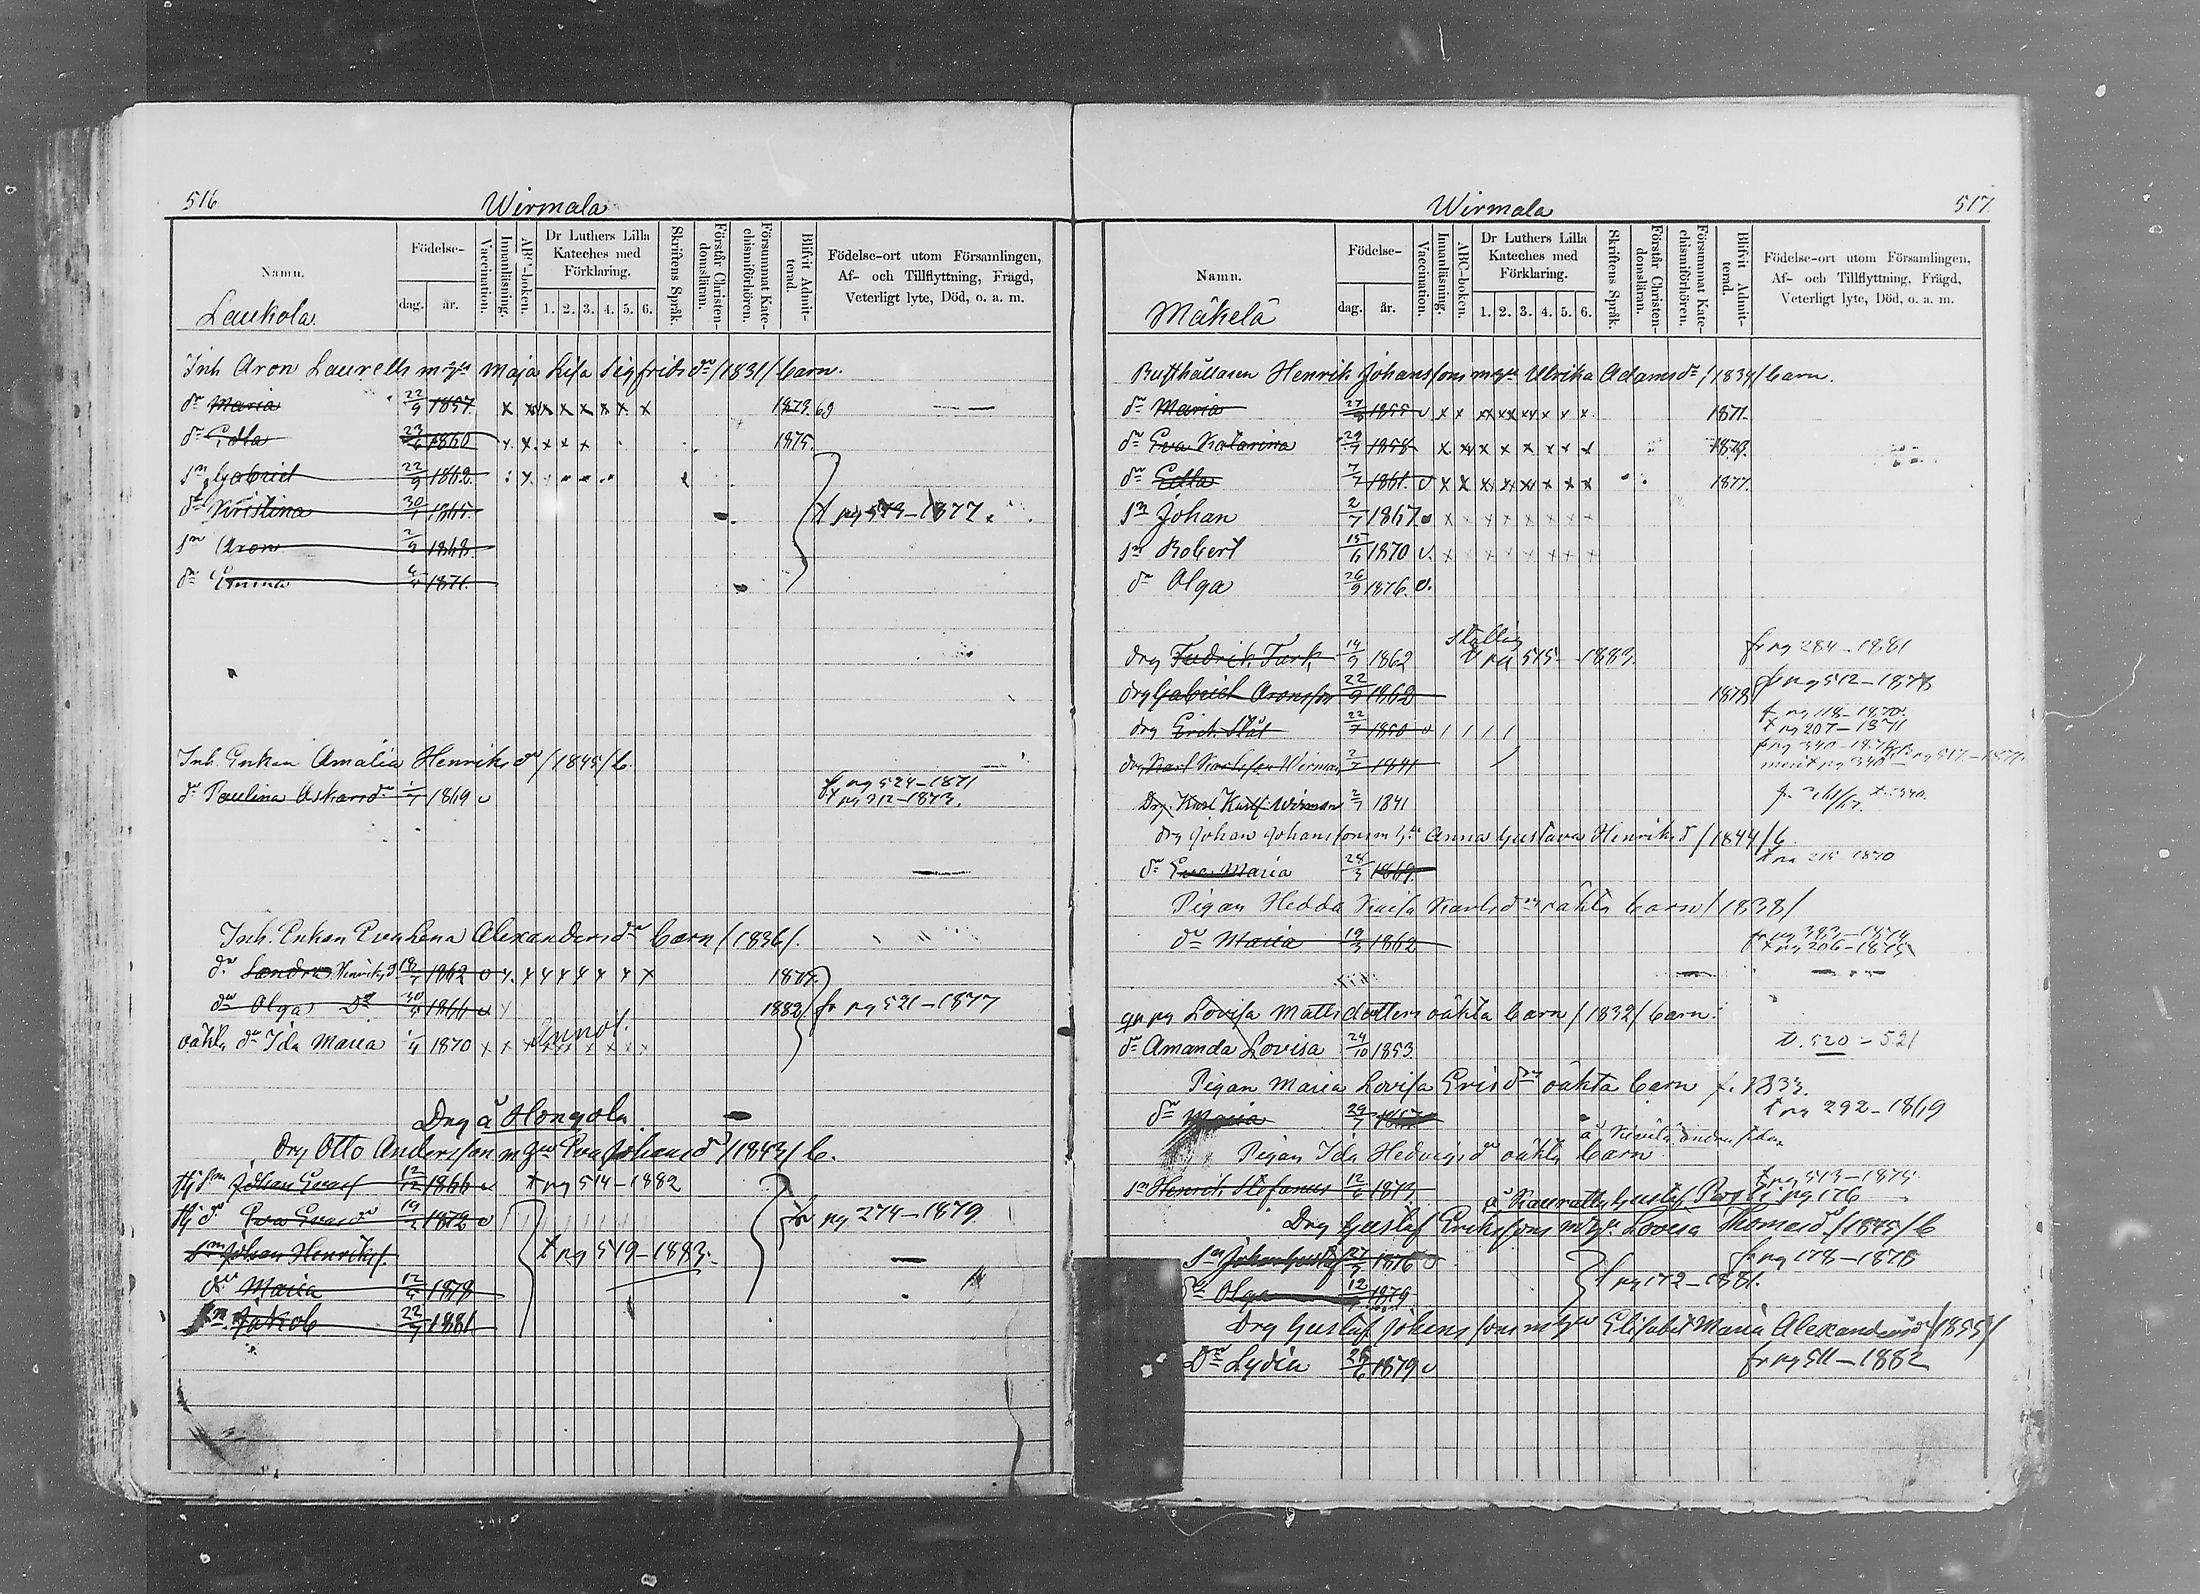 516
Wirmala
Namn.
Födelse-
dag.
år.
Vaccination.
Innanläsning.
ABC-boken.
Dr Luthers Lilla Kateches med Förklaring.
1. 2. 3. 4. 5. 6.
Skriftens Språk.
Förstår Christendomsläran.
Försummat Katechismiförhören.
Blifvit Admitterad.
Födelse-ort utom Församlingen,
Af- och Tillflyttning, Frägd,
Veterligt lyte, Död, o. a. m.
Laukola
Inh Aron Laurells m hu Maja Lisa Sigfrids dr /1831/ barn.
dr Maria 22/9 1857 x x x x x x x x
dr Edla 23/6 1860 x x x x x 1875.
sn Gabriel 22/9 1862
dr Kristina 30/1 1865.
sn Aron 2/9 1868
dr Emma 1871.
1877.
Inh. Enkan Amalia Henriks dr /1845/ b.
dr Paulina Oskars dr 1869 v
fr pg 524-1871
t pg 312-1873.
Inh. Enkan Eva Lena Alexanders dr barn /1836/.
dr Sandra Henriks d 18/7 1862 v
dr Olga Do 1866 v 1882
fr pg 521-1877
oäkta dr Ida Maria 1870 x x x x x x x x x
Annot.
Drg å Hongola
Drg Otto Andersson m hu Eva Johans dr /1843/ b.
sn Johan 12/12 1866 v
t pg 514-1882
dr Eva 19/2 1872 v
fr pg 274-1879
sn Johan Henriksf.
t pg 519-1883.
dr Maria 1878
sn Jakob 22/7 1881
Wirmala
517.
Namn.
Födelse-
dag.
år.
Vaccination.
Innanläsning.
ABC-boken.
Dr Luthers Lilla Kateches med Förklaring.
1. 2. 3. 4. 5. 6.
Skriftens Språk.
Förstår Christendomsläran.
Försummat Katechismiförhören.
Blifvit Admitterad.
Födelse-ort utom Församlingen,
Af- och Tillflyttning, Frägd,
Veterligt lyte, Död, o. a. m.
Mäkelä
Rusthållaren Henrik Johanssons m hu Ulrika Adams dr /1834/ barn.
dr Maria 27/8 1855 v x x x x x x x x 1871.
dr Eva Katarina 29/7 1858 x x x x x x x x
dr Edla 7/7 1861. v x x x x x x x x 1877.
sn Johan 2/7 1867. x x x x x x x x
sn Robert 15/6 1870 v. x x x x x x x x
dr Olga 26/9 1876. v.
drg Fredrik Turk 14/9 1862
t pg 515-1883.
fr pg 284-1881
drg Gabriel Aronsson 22/9 1862
fr pg 512-1878
drg Erik Stål 22/7 1850 v
t pg 207-1871
drg Karl Karlsson Wirman 2/7 1841
Drg. Karl Karlf Wirman 2/7 1841
drg Johan Johanssons m hu Anna Gustava Henriks d /1844/ b
dr Eva Maria 1869.
Pigan Hedda Kaisa Karls drs oäkta barn /1838/
dr Maria 19/3 1862
Lovisa Matts dotters oäkta barn /1832/ barn:
dr Amanda Lovisa 24/10 1853
t. 520-521
Pigan Maria Lovisa Erics drs oäkta barn f. 1833.
dr Maria 29/7
t pg 292-1869
Pigan Ida Hedvigs d oäkta barn
sn Henrik Stefanus 12/6 1873
t pg 513-1875.
Drg Gustaf Erikssons m hu Lovisa Thomas dr /1845/ b
sn Johan Gustaf 27/7 1876 v
fr pg 178-1878
dr Olga 12/7 1879
t pg 172-1881.
Drg Gustaf Johanssons m hu Elisabet Maria Alexanders dr /1855/
Dr Lydia 1879 v
fr pg 511-1882